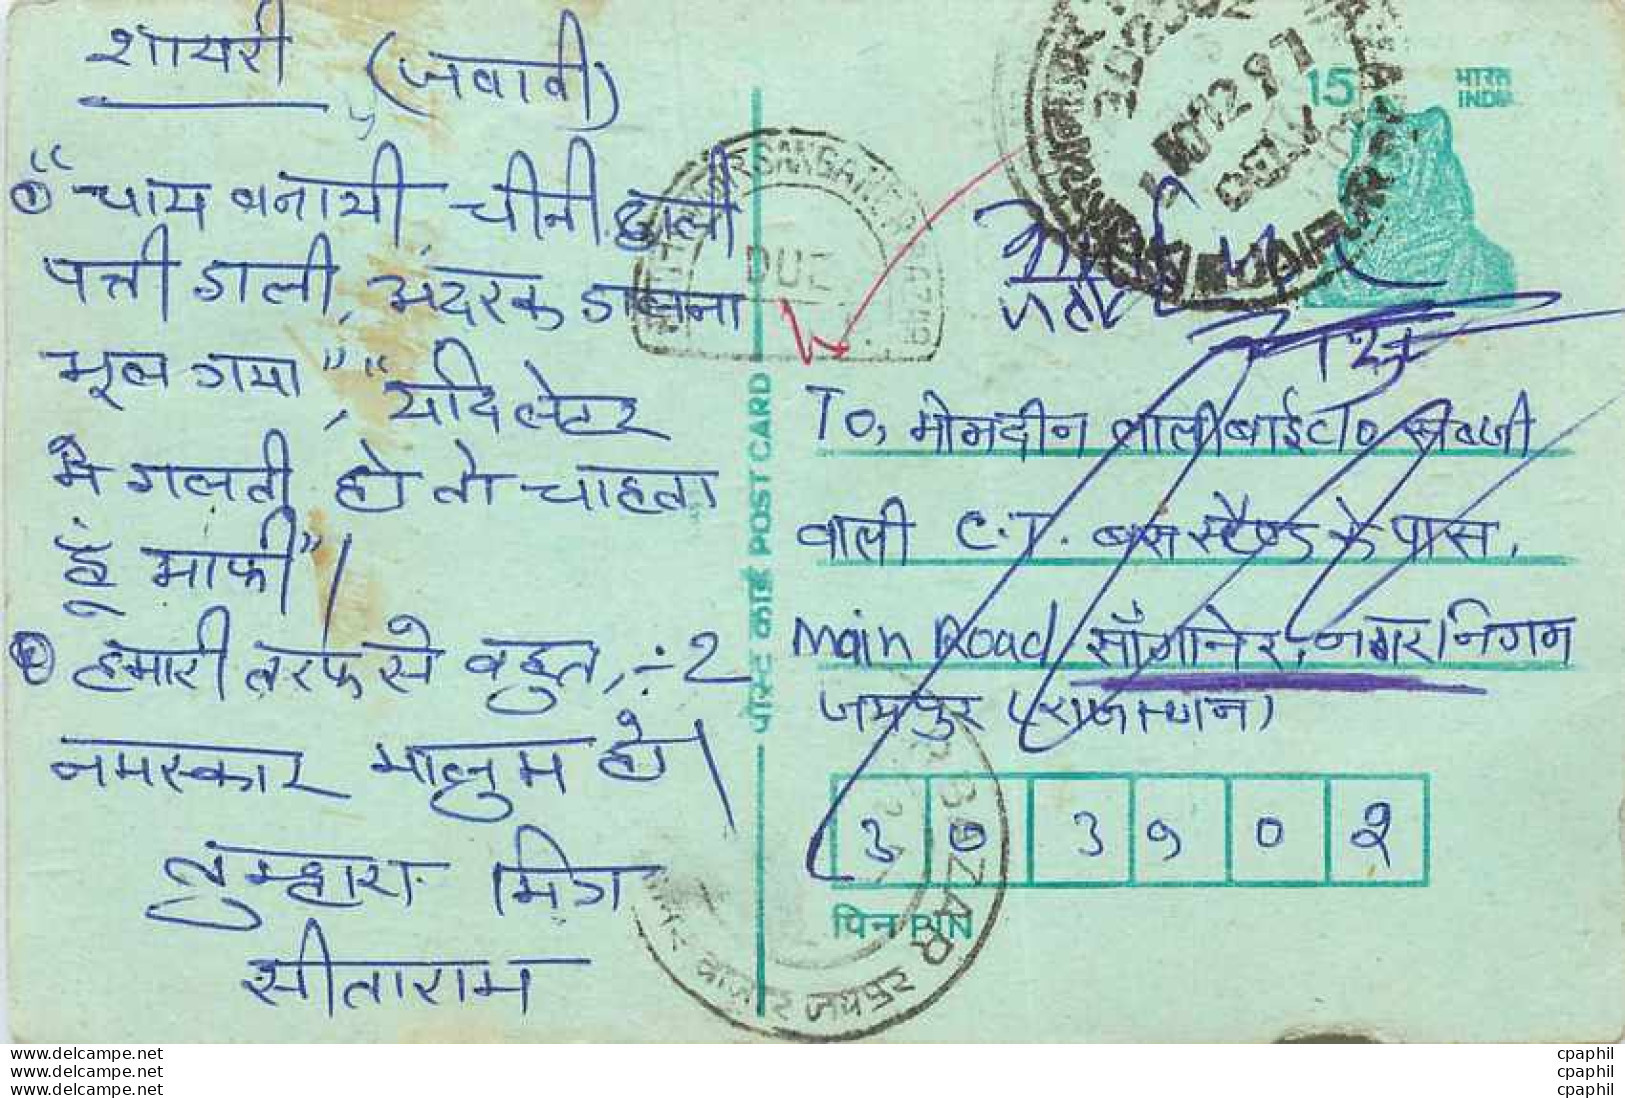 शायरी (जवाबी)
① "चाय बनायी चीनी डाली
पत्ती डाली, अदरक डालना
भूल गया", "यदि लेटर
मे गलती हो तो चाहता
हूं माफी"।
② हमारी तरफ से बहुत, -:2
नमस्कार मालुम हो।
तुम्हारा मित्र
सीताराम
पोस्ट कार्ड POST CARD
DUE
302902
12 97
DELY
JAIPUR
15 भारत
INDIA
To, मोमदीन लालीबाई C/o सब्जी
वाली C.T. बस स्टैण्ड के पास,
Main Road सॉंगानेर, नगर निगम
जयपुर (राजस्थान)
303902
पिन PIN
BAZAR
बाजार जयपुर
www.delcampe.net
www.delcampe.net
www.delcampe.net
cpaphil
cpaphil
cpaphil